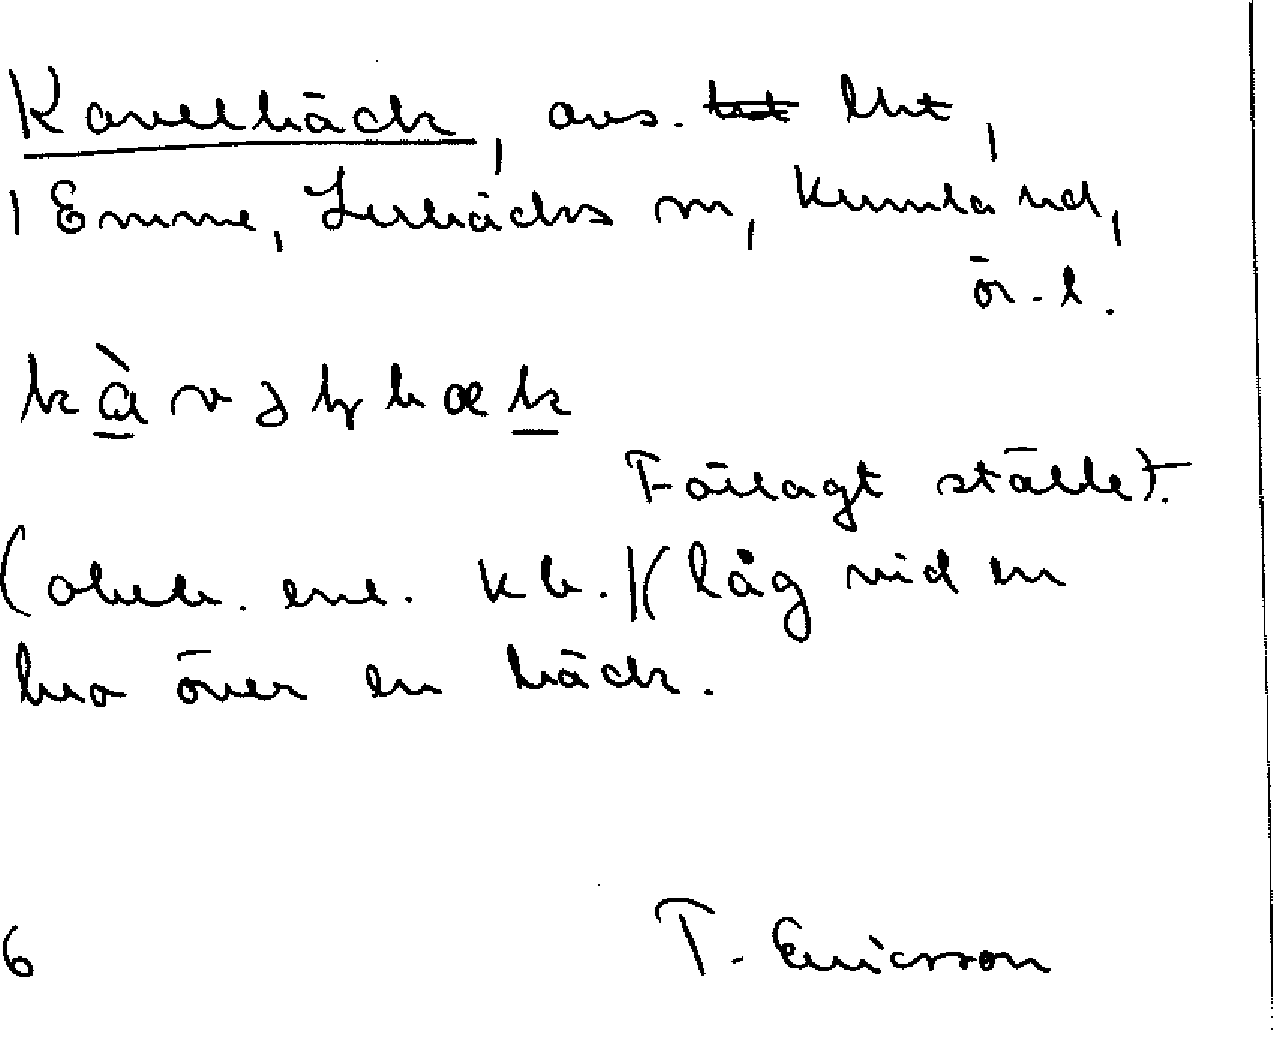 Kavelbäck, avs. lht,
i Emme, Lerbäcks sn, Kumla hd,
Ör. l.
kàvəlbæk
Förlagt ställe.
(obeb. enl. kb.)(låg vid en
bro över en bäck.
6 T. Ericsson